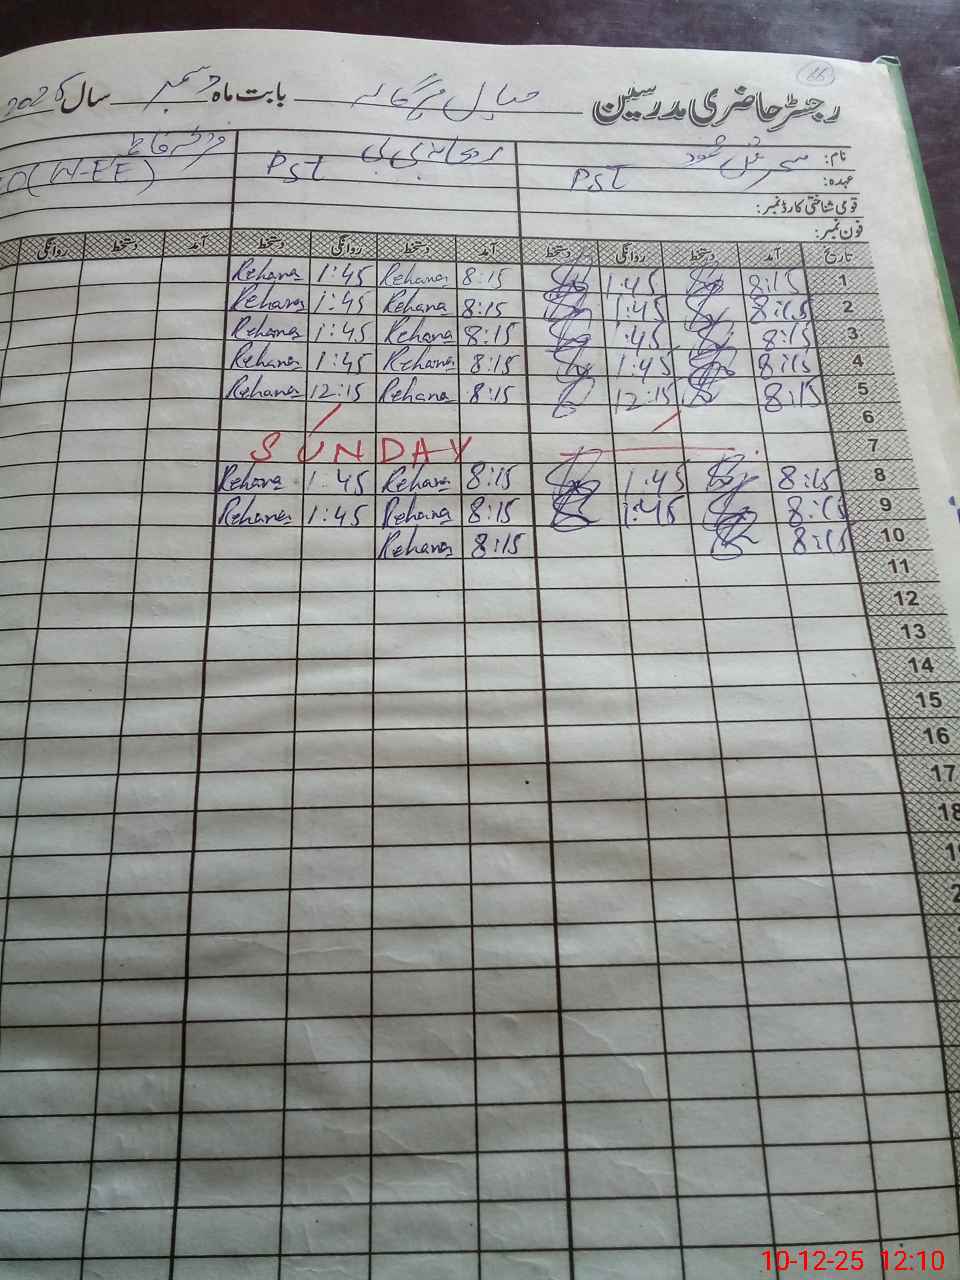 66
رجسٹر حاضری مدرسین بابت ماہ دسمبر سال 2025
نام: ریحانہ بی بی
عہدہ: PST PST (W-EE)
قومی شناختی کارڈ نمبر:
فون نمبر:
تاریخ آمد دستخط روانگی دستخط آمد دستخط روانگی دستخط آمد دستخط روانگی
1 8:15 1:45 8:15 Rehana 1:45 Rehana
2 8:15 1:45 8:15 Rehana 1:45 Rehana
3 8:15 1:45 8:15 Rehana 1:45 Rehana
4 8:15 1:45 8:15 Rehana 1:45 Rehana
5 8:15 12:15 8:15 Rehana 12:15 Rehana
6
7 SUNDAY
8 8:15 1:45 8:15 Rehana 1:45 Rehana
9 8:15 1:45 8:15 Rehana 1:45 Rehana
10 8:15 8:15 Rehana
11
12
13
14
15
16
17
18
10-12-25 12:10